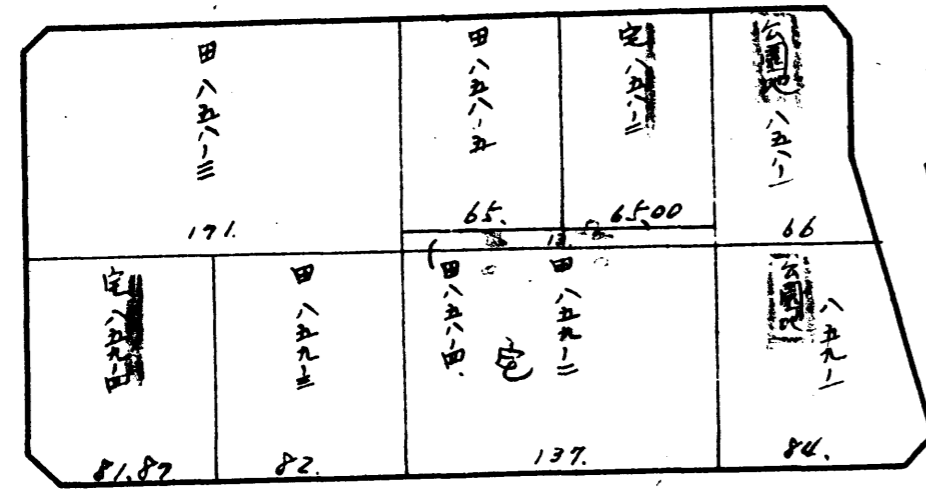 田 八五八ー三
171.
田 八五八ー五
65.
宅 八五八ー二
65.00
公園地 八五八ー一
66
宅 八五九ー四
81.87
田 八五九ー三
82.
田 八五八ー四.
宅
田 八五九ー二
137.
公園地 八五九ー一
84.